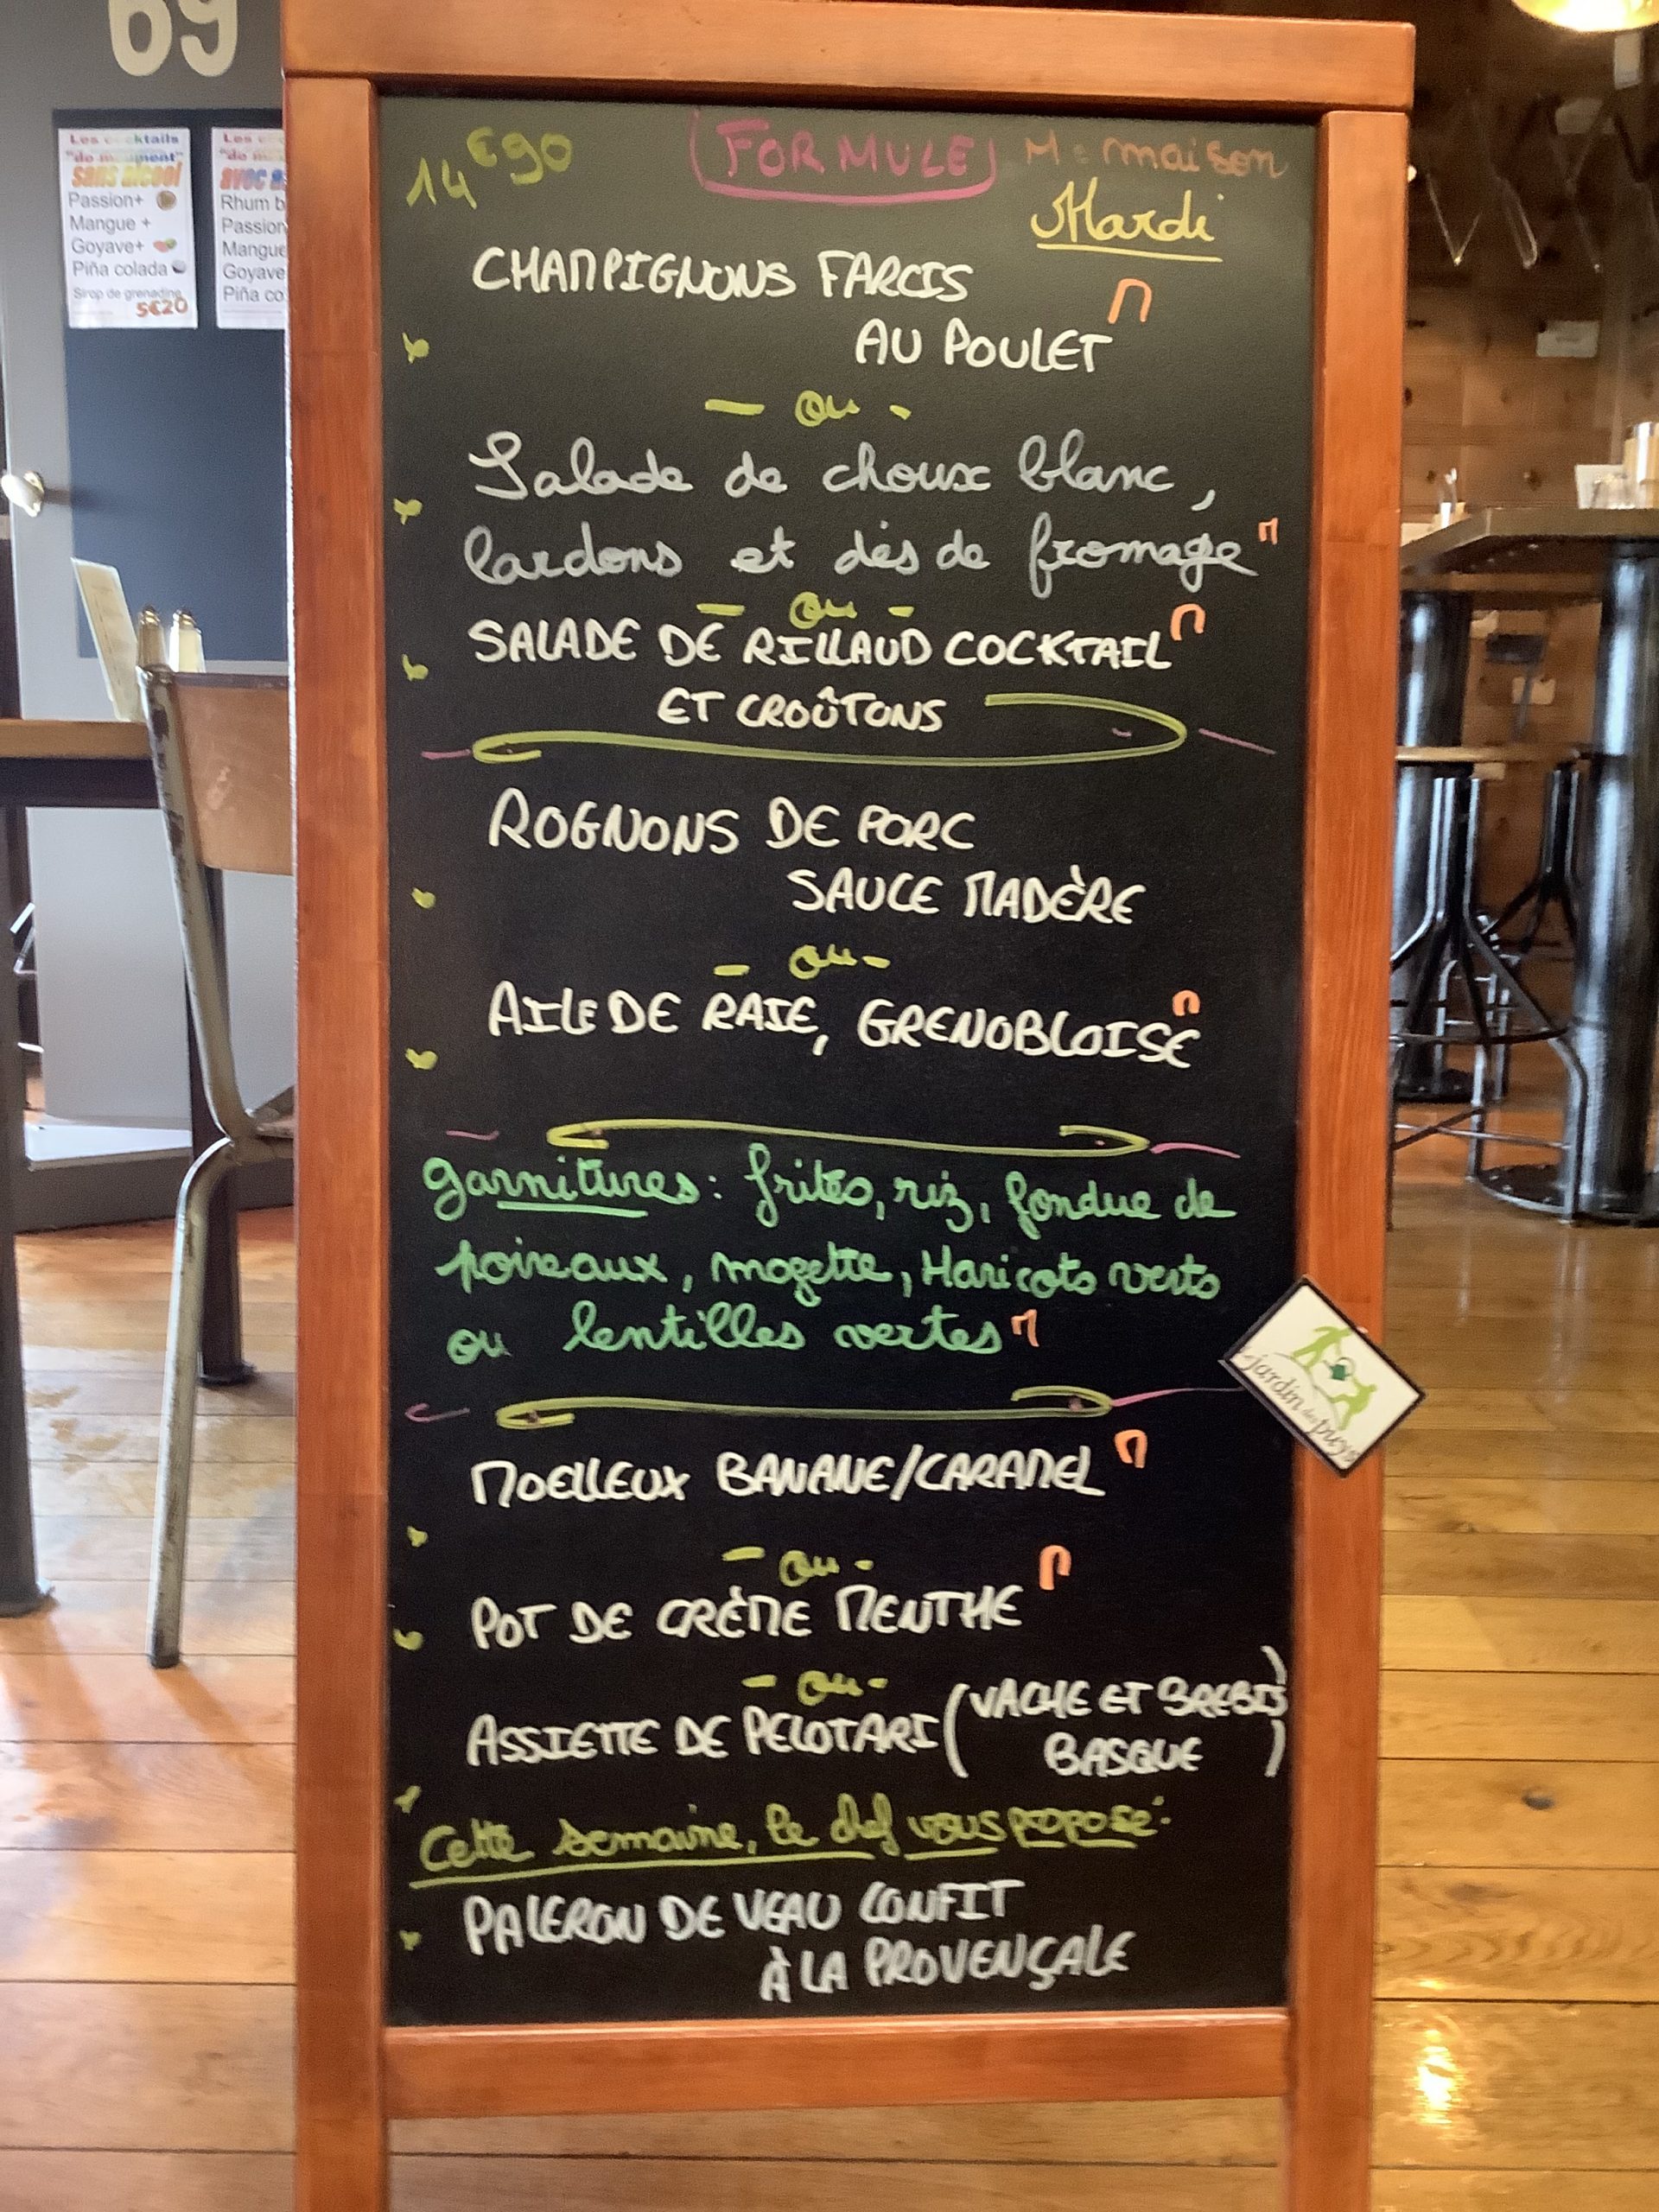 69
Les cocktails
"du moment"
sans alcool
Passion+
Mangue +
Goyave+
Piña colada
Sirop de grenadine
5€20
Les
avec
Rhum b
Passion
Mangue
Goyave
Piña co
14€90
FORMULE
M = maison
Mardi
CHAMPIGNONS FARCIS
AU POULET M
- ou -
Salade de choux blanc,
lardons et dés de fromage M
- ou -
SALADE DE RILLAUD COCKTAIL M
ET CROÛTONS
ROGNONS DE PORC
SAUCE MADÈRE
- ou -
AILE DE RAIE, GRENOBLOISE M
garnitures: frites, riz, fondue de
poireaux, mogette, Haricots verts
ou lentilles vertes M
MOELLEUX BANANE/CARAMEL M
- ou -
POT DE CRÈME MENTHE M
- ou -
ASSIETTE DE PELOTARI (VACHE ET BREBIS
BASQUE)
Cette semaine, le chef vous propose:
PALERON DE VEAU CONFIT
À LA PROVENÇALE
jardin des puys